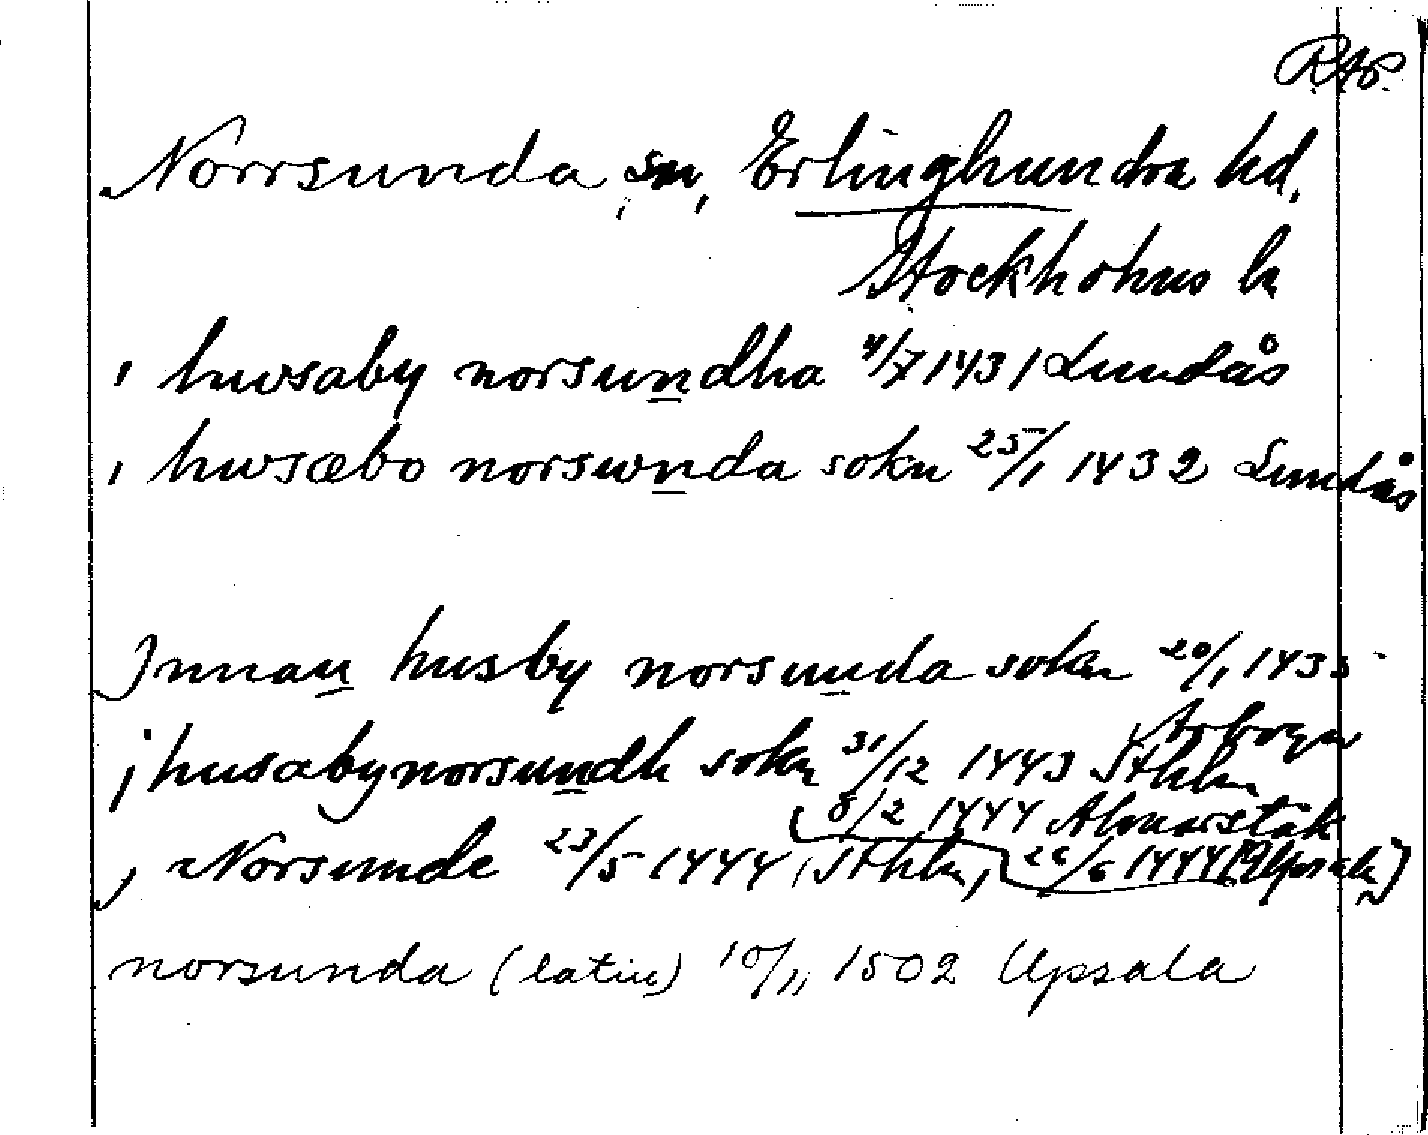 RAp.
Norrsunda sn, Erlinghundra hd,
Stockholms ln
i hwsaby norsundha 4/7 1431 Lundås
i hwsæbo norswnda sokn 25/1 1432 Lundås
Jnnan husby norsunda sokn 20/1 1435
Arboga
j husabynorsundh sokn 31/12 1443 Sthlm
8/2 1444 Almarstäk
j Norsunde 23/5 1444 (Sthlm, 26/6 1444 (Upsala)
norsunda (latin) 10/11 1502 Upsala